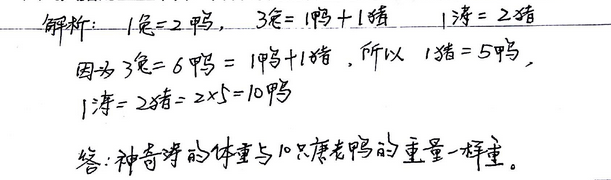 解析: 1兔=2鸭, 3兔=1鸭+1猪 1涛=2猪
因为3兔=6鸭=1鸭+1猪,所以 1猪=5鸭,
1涛=2猪=2×5=10鸭
答:神奇涛的体重与10只唐老鸭的重量一样重。